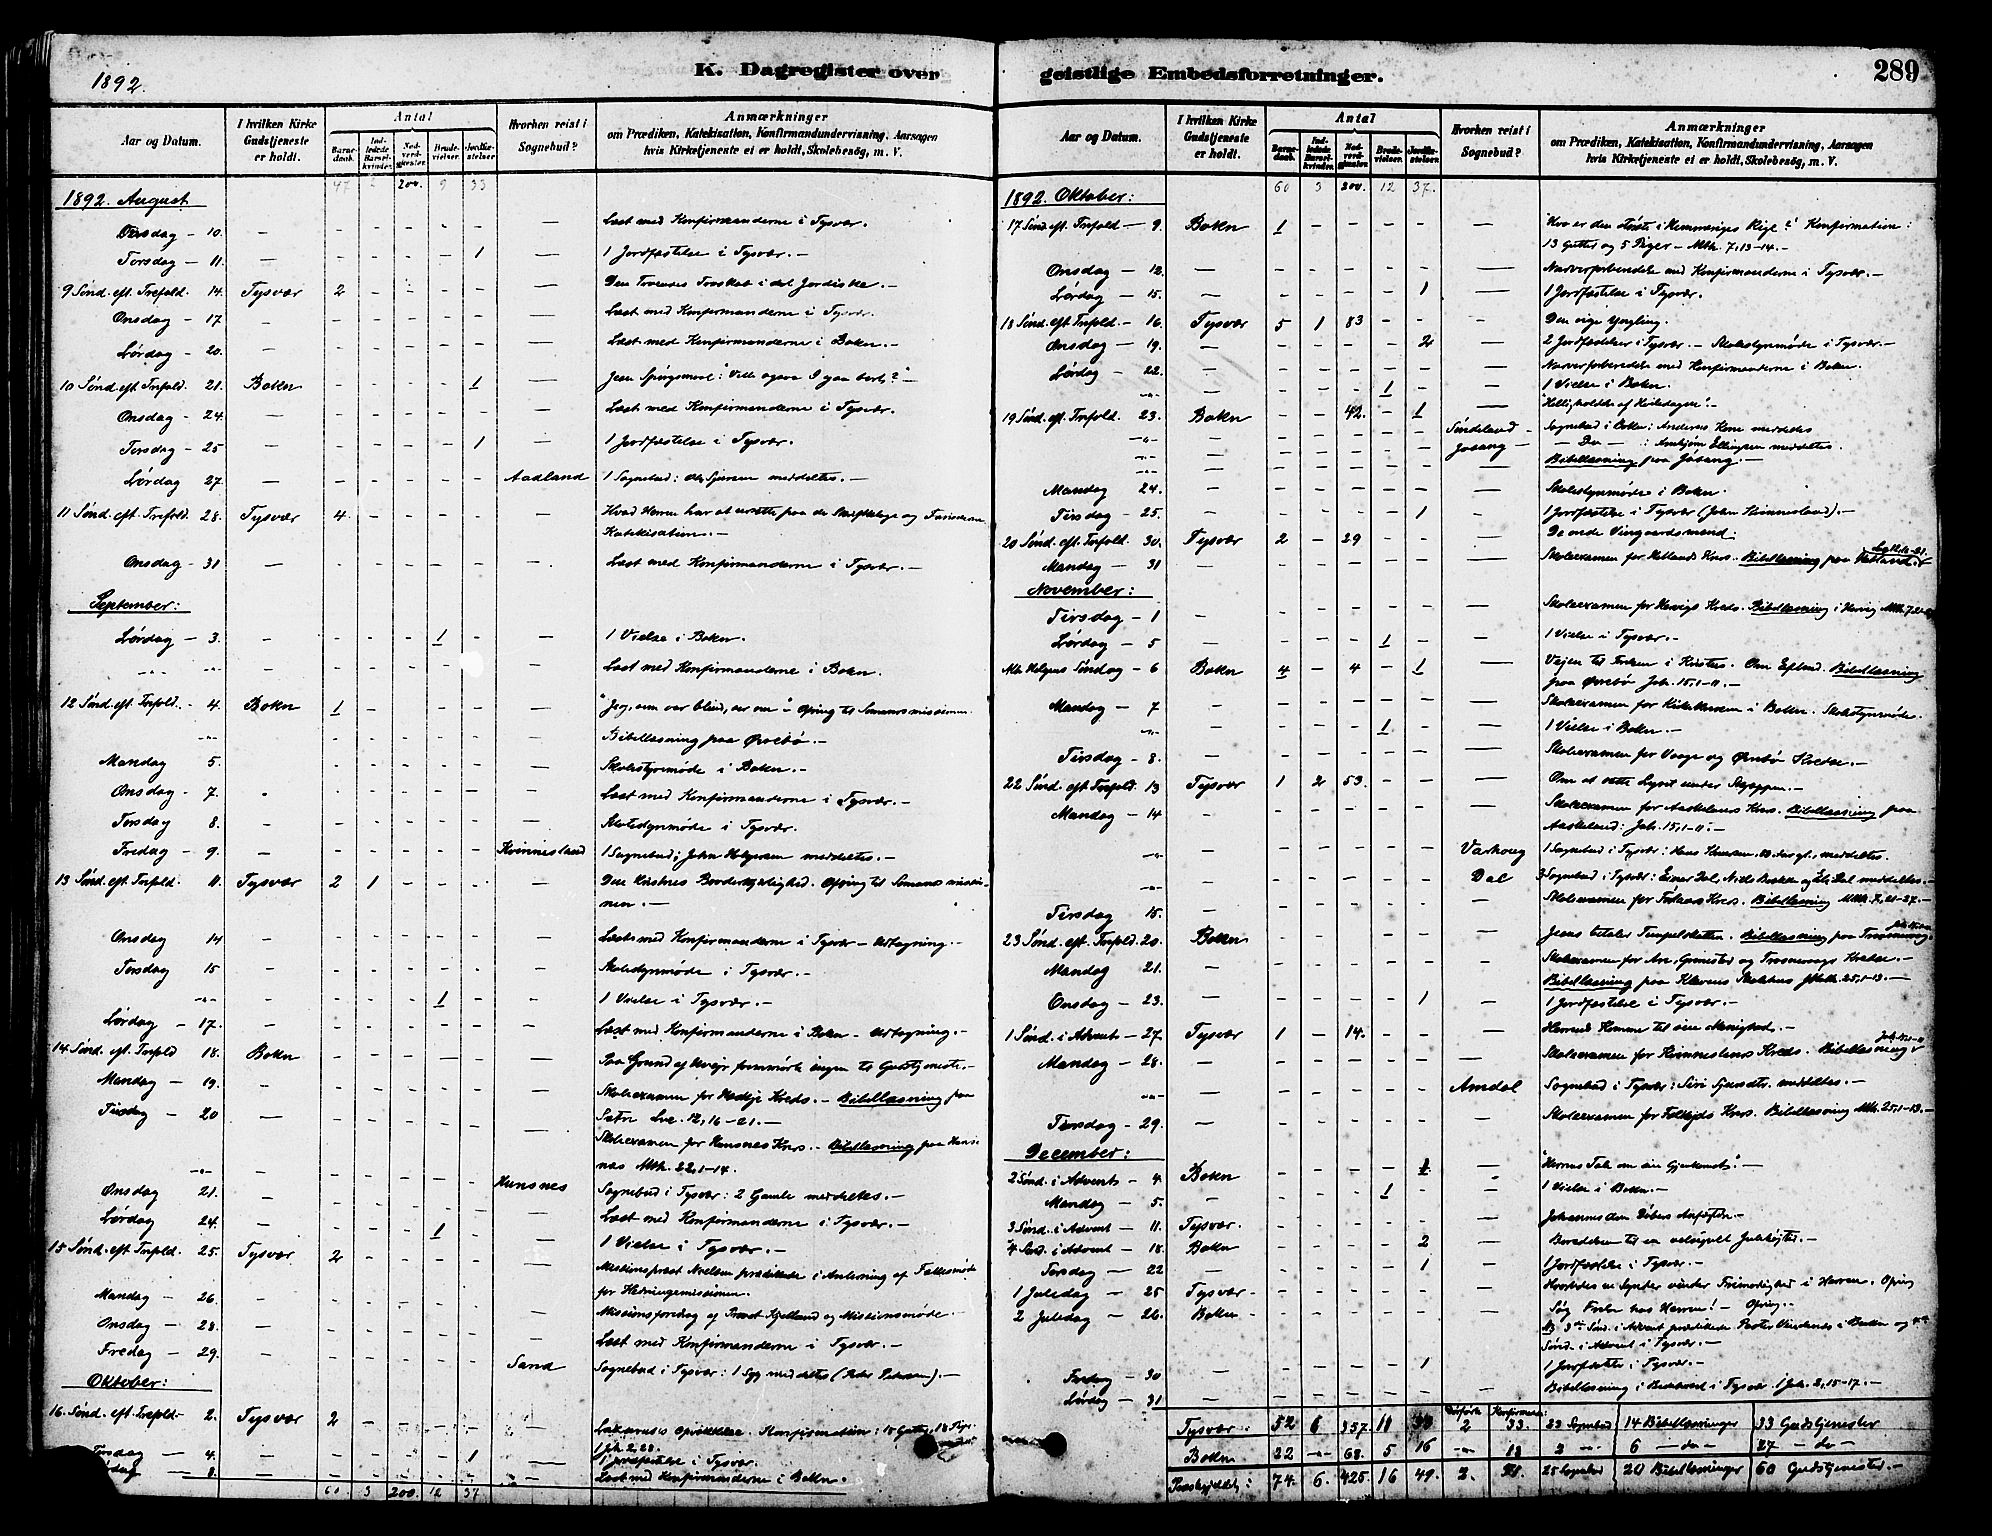 1892.
K. Dagregister over
geistlige Embedsforretninger.
289
Aar og Datum.
I hvilken Kirke Gudstjeneste er holdt.
Antal
Barnedaab.
Indledede Barselkvinder.
Nadverdgjæster.
Brudevielser.
Jordfæstelser
Hvorhen reist i Sognebud?
Anmærkninger
om Prædiken, Katekisation, Konfirmandundervisning, Aarsagen
hvis Kirketjeneste ei er holdt, Skolebesög, m. V.
47 2 200. 9 33
1892. August
Tirsdag – 10. – – – – – – – Læst med Konfirmanderne i Tysvær.
Torsdag – 11. – – – – – 1 – 1 Jordfæstelse i Tysvær. –
9 Sønd. eft. Trefold. 14. Tysvær 2 – – – – – Den Troendes Troskab i det Jordiske. –
Onsdag – 17 – – – – – – – Læst med Konfirmanderne i Tysvær.
Lørdag – 20. – – – – – – – Læst med Konfirmanderne i Bokn. –
10 Sønd. eft. Trefold. 21. Bokn – – – – 1 – Jesu Spørgsmaal: "Ville ogsaa I gaa bort?" –
Onsdag – 24. – – – – – – – Læst med Konfirmanderne i Tysvær.
Torsdag – 25 – – – – – 1 – 1 Jordfæstelse i Tysvær.
Lørdag 27. – – – – – – Aadland 1 Sognebud: Ole Sjursen meddeltes. –
11 Sønd. eft. Trefold. 28. Tysvær 4. – – – – – Hvad Herren har at udsætte paa de Skriftkloge og Farisæerne
Katekisation. –
Onsdag – 31 – – – – – – – Læst med Konfirmanderne i Tysvær. –
September:
Lørdag – 3. – – – – 1 – – 1 Vielse i Bokn.
–"– – – – – – – – Læst med Konfirmanderne i Bokn.
12 Sønd. eft. Trefold. – 4. Bokn 1 – – – – – "Jeg, som var blind, ser nu" – Ofring til Sømandsmissionen.
–"– – – – – – – Bibellæsning paa Ørebø. –
Mandag 5. – – – – – – Skolestyremøde i Bokn. –
Onsdag – 7. – – – – – – Læst med Konfirmanderne i Tysvær. –
Torsdag 8. – – – – – – – Skolestyremøde i Tysvær.
Fredag – 9. – – – – – – Kvinnesland 1 Sognebud; John Helgesen meddeltes. –
13 Sønd. eft. Trefold. 11. Tysvær 2 1 – – – – Den Kristnes Broderkjærlighed. Ofring til Sømandsmissio-
nen. –
Onsdag 14 – – – – – – – Læst med Konfirmanderne i Tysvær – Udtagning. –
Torsdag 15 – – – – – – – Skolestyremøde i Tysvær. –
–"– – – – – 1 – – 1 Vielse i Tysvær. –
Lørdag – 17. – – – – – – – Læst med Konfirmanderne i Bokn – Udtagning. –
14. Sønd. eft. Trefold 18. Bokn – – – – – – Paa Grund af Uveir fremmødte ingen til Gudstjeneste. –
Mandag – 19. – – – – – – – Skoleexamen for Kreds. – Bibellæsning paa
Tirsdag – 20 – Luc. 12, 16–21. –
Skoleexamen for Hunsnes Kreds. – Bibellæsning paa Huns-
–"– nes Mth. 22, 1–14.
Onsdag 21. – – – – – – Hunsnes Sognebud i Tysvær: 2 Gamle meddeltes. –
Lørdag 24. – – – – – – – Læst med Konfirmanderne i Tysvær. –
15 Sønd. eft Trefold. 25. Tysvær 2 – – 1 – – 1 Vielse i Tysvær. –
Missionsprest Nielsen prædikede i Anledning af Fællesmøde
Mandag – 26. – – – – – – for Hedningemissionen.
Onsdag – 28. – – – – – – Missionsforedrag af Provst Kjelland og Missionsmøde. –
Fredag – 29. – – – – – – – Læst med Konfirmanderne i Tysvær. –
Sand Sognebud i Tysvær: 1 Syg meddeltes (Peder Pedersen). –
Oktober:
16. Sønd. eft. Trefold – 2. Tysvær 2 – – – – – Lazarus's Opvækkelse. Konfirmation: 15 Gutter, 18 Piger.
1 Joh. 2, 28.
Tirsdag – 4. – – – – – 1 – 1 Jordfæstelse i Tysvær.
– 8. – – – – – – – Læst med Konfirmanderne i Bokn. –
60 3 200. 12 37
Aar og Datum.
I hvilken Kirke Gudstjeneste er holdt.
Antal
Barnedaab.
Indledede Barselkvinder.
Nadverdgjæster.
Brudevielser.
Jordfæstelser.
Hvorhen reist i Sognebud?
Anmærkninger
om Prædiken, Katekisation, Konfirmandundervisning, Aarsagen
hvis Kirketjeneste ei er holdt, Skolebesög, m. V.
60 3 200. 12 37.
1892. Oktober:
17 Sønd. eft. Trefold – 9. Bokn 1 – – – – – "Hvo er den største i Himmeriges Rige?" Konfirmation:
13 Gutter og 5 Piger – Mth. 7, 13–14. –
Onsdag – 12. – – – – – – – Nadverforberedelse med Konfirmanderne i Tysvær. –
Lørdag – 15. – – – – – 1 – 1 Jordfæstelse i Tysvær.
18 Sønd. eft. Trefold. – 16. Tysvær 5 1 83 – – – Den rige Yngling.
Onsdag – 19. – – – – – 2 – 2 Jordfæstelser i Tysvær. – Skolestyremøde i Tysvær. –
Lørdag – 22. – – – – – – – Nadverforberedelse med Konfirmanderne i Bokn.
–"– – – – 1 – – 1 Vielse i Bokn.
19 Sønd. eft. Trefold. 23. Bokn – – 42. – 1 – "Helligholdelse af Hviledagen". –
–"– – – – – – – Sognebud i Bokn: Anders meddeltes
–"– – – – – – Jøsang – Do – : Ellingsen meddeltes.
–"– – – – – – – Bibellæsning paa Jøsang. –
Mandag 24. – – – – – – – Skolestyremøde i Bokn.
Tirsdag – 25. – – – – – 1 – 1 Jordfæstelse i Tysvær (John Kvinnesland). –
20 Sønd. eft. Trefold. 30. Tysvær 2 – 29 – – – De onde Vingaardsmænd.
Mandag – 31 – – – – – – – Skoleexamen for Hetlands Kreds. Bibellæsning paa Hetland.
November:
Tirsdag – 1 – – – – – – – Skoleexamen for Hervigs Kreds. Bibellæsning i Hervig Mth. 7,
Lørdag – 5 – – – – 1 – – 1 Vielse i Tysvær. –
Alle Helgens Søndag – 6 Bokn 4 – 4 – 1 – Vejen til Freden i Kristus. Bibellæsning
paa Ørebø Joh. 15, 1–11. –
Mandag – 7 – – – – – – – Skoleexamen for Kirkekredsen i Bokn. Skolestyremøde.
–"– – – – – 1 – – 1 Vielse i Bokn. –
Tirsdag – 8. – – – – – – – Skoleexamen for Vaage og Ørebø Kredse. –
22 Sønd. eft Trefold. 13 Tysvær 1 2 53. – – – Om at sætte Lyset under Skjæppen. –
Mandag – 14 – – – – – – – Skoleexamen for Kreds. Bibellæsning paa
: Joh. 15, 1–11. –
–"– – – – – – Varhoug 1 Sognebud i Tysvær: Hans meddeltes.
–"– – – – – – Dal 3 Sognebud i Tysvær: Einar Dal, Niels og Dal meddeltes. –
Tirsdag 15. – – – – – – – Skoleexamen for Kreds. Bibellæsning Mth. 7, 21–27. –
23 Sønd. eft. Trefold. 20. Bokn – – – – – – Jesus betaler Tempelskatten. Bibellæsning paa
Mandag 21. – – – – – – – Skoleexamen for Are, Grimstad og Kredse. –
Bibellæsning paa Skolehus Mth. 25, 1–13. –
Onsdag – 23. – – – – – 1 – 1 Jordfæstelse i Tysvær. –
1 Sønd. i Advent – 27. Tysvær 1 – 14. – – – Herrens Komme til sin Menighed. –
Mandag – 28. – – – – – – – Skoleexamen for Kvinneslands Kreds. Bibellæsning
–"– – – – – – Amdal Sognebud i Tysvær: Siri Sjursdtr. meddeltes. –
Tirsdag – 29. – – – – – – – Skoleexamen for Kreds. Bibellæsning Mth. 25, 1–13. –
December:
2 Sønd. i Advent – 4. Bokn – – – – 1 – "Herrens Tale om sin Gjenkomst". –
Mandag – 5. – – – – 1 – – 1 Vielse i Bokn. –
3 Sønd. i Advent – 11. Tysvær. – – – – – – Johannes den Døbers –
4 Sønd. i Advent – 18. Bokn – – – – 2 – Beredelsen til en velsignet Julehøjtid. –
Torsdag – 22 – – – – – 1 – 1 Jordfæstelse i Tysvær. –
1 Juledag – 25 Tysvær – – – – – – Hvorledes en Synder vinder Frimodighed i Herren. Ofring
2 Juledag – 26. Bokn – – – – – – Søg Freden hos Herren! – Ofring. –
NB 3die Sønd. i Advent prædikede Pastor i Bokn og 4de
Sønd. i Advent i Tysvær. –
Fredag – 30 – – – – – 1 – 1 Jordfæstelse i Tysvær. –
Lørdag – 31 – – – – – – – Bibellæsning i Bedehuset i Tysvær 1 Joh. 2, 15–17. –
Konfirmerede:
Tysvær: 52 6 357 11 33 2 33. 23 Sognebud 14 Bibellæsninger 33 Gudstjenester
Bokn 22 –"– 68. 5 16 –"– 18 2 –"– 6 – do – 27 – do –
Præstegjeldet: 74. 6. 425 16 49. 2. 51. 25 Sognebud 20 Bibellæsninger 60 Gudstjenester. –